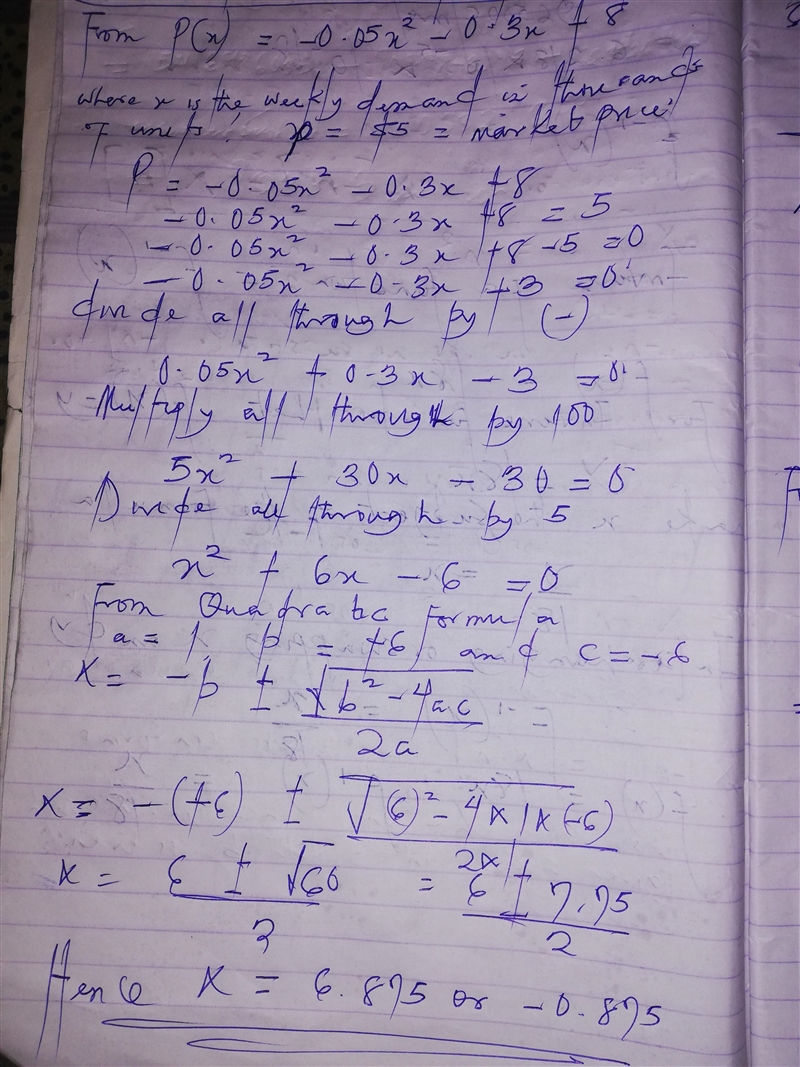 From P(x) = -0.05x² - 0.3x + 8
where x is the weekly demand in thousands
of units. p = $5 = market price.
P = -0.05x² - 0.3x + 8
-0.05x² - 0.3x + 8 = 5
-0.05x² - 0.3x + 8 - 5 = 0
-0.05x² - 0.3x + 3 = 0
divide all through by (-)
0.05x² + 0.3x - 3 = 0
Multiply all through by 100
5x² + 30x - 30 = 0
Divide all through by 5
x² + 6x - 6 = 0
From Quadratic Formula
a = 1, b = +6 and c = -6
x = -b ± √b² - 4ac
2a
x = -(+6) ± √(6)² - 4x1x(-6)
2x1
x = 6 ± √60 = 6 ± 7.75
2 2
Hence x = 6.875 or -0.875